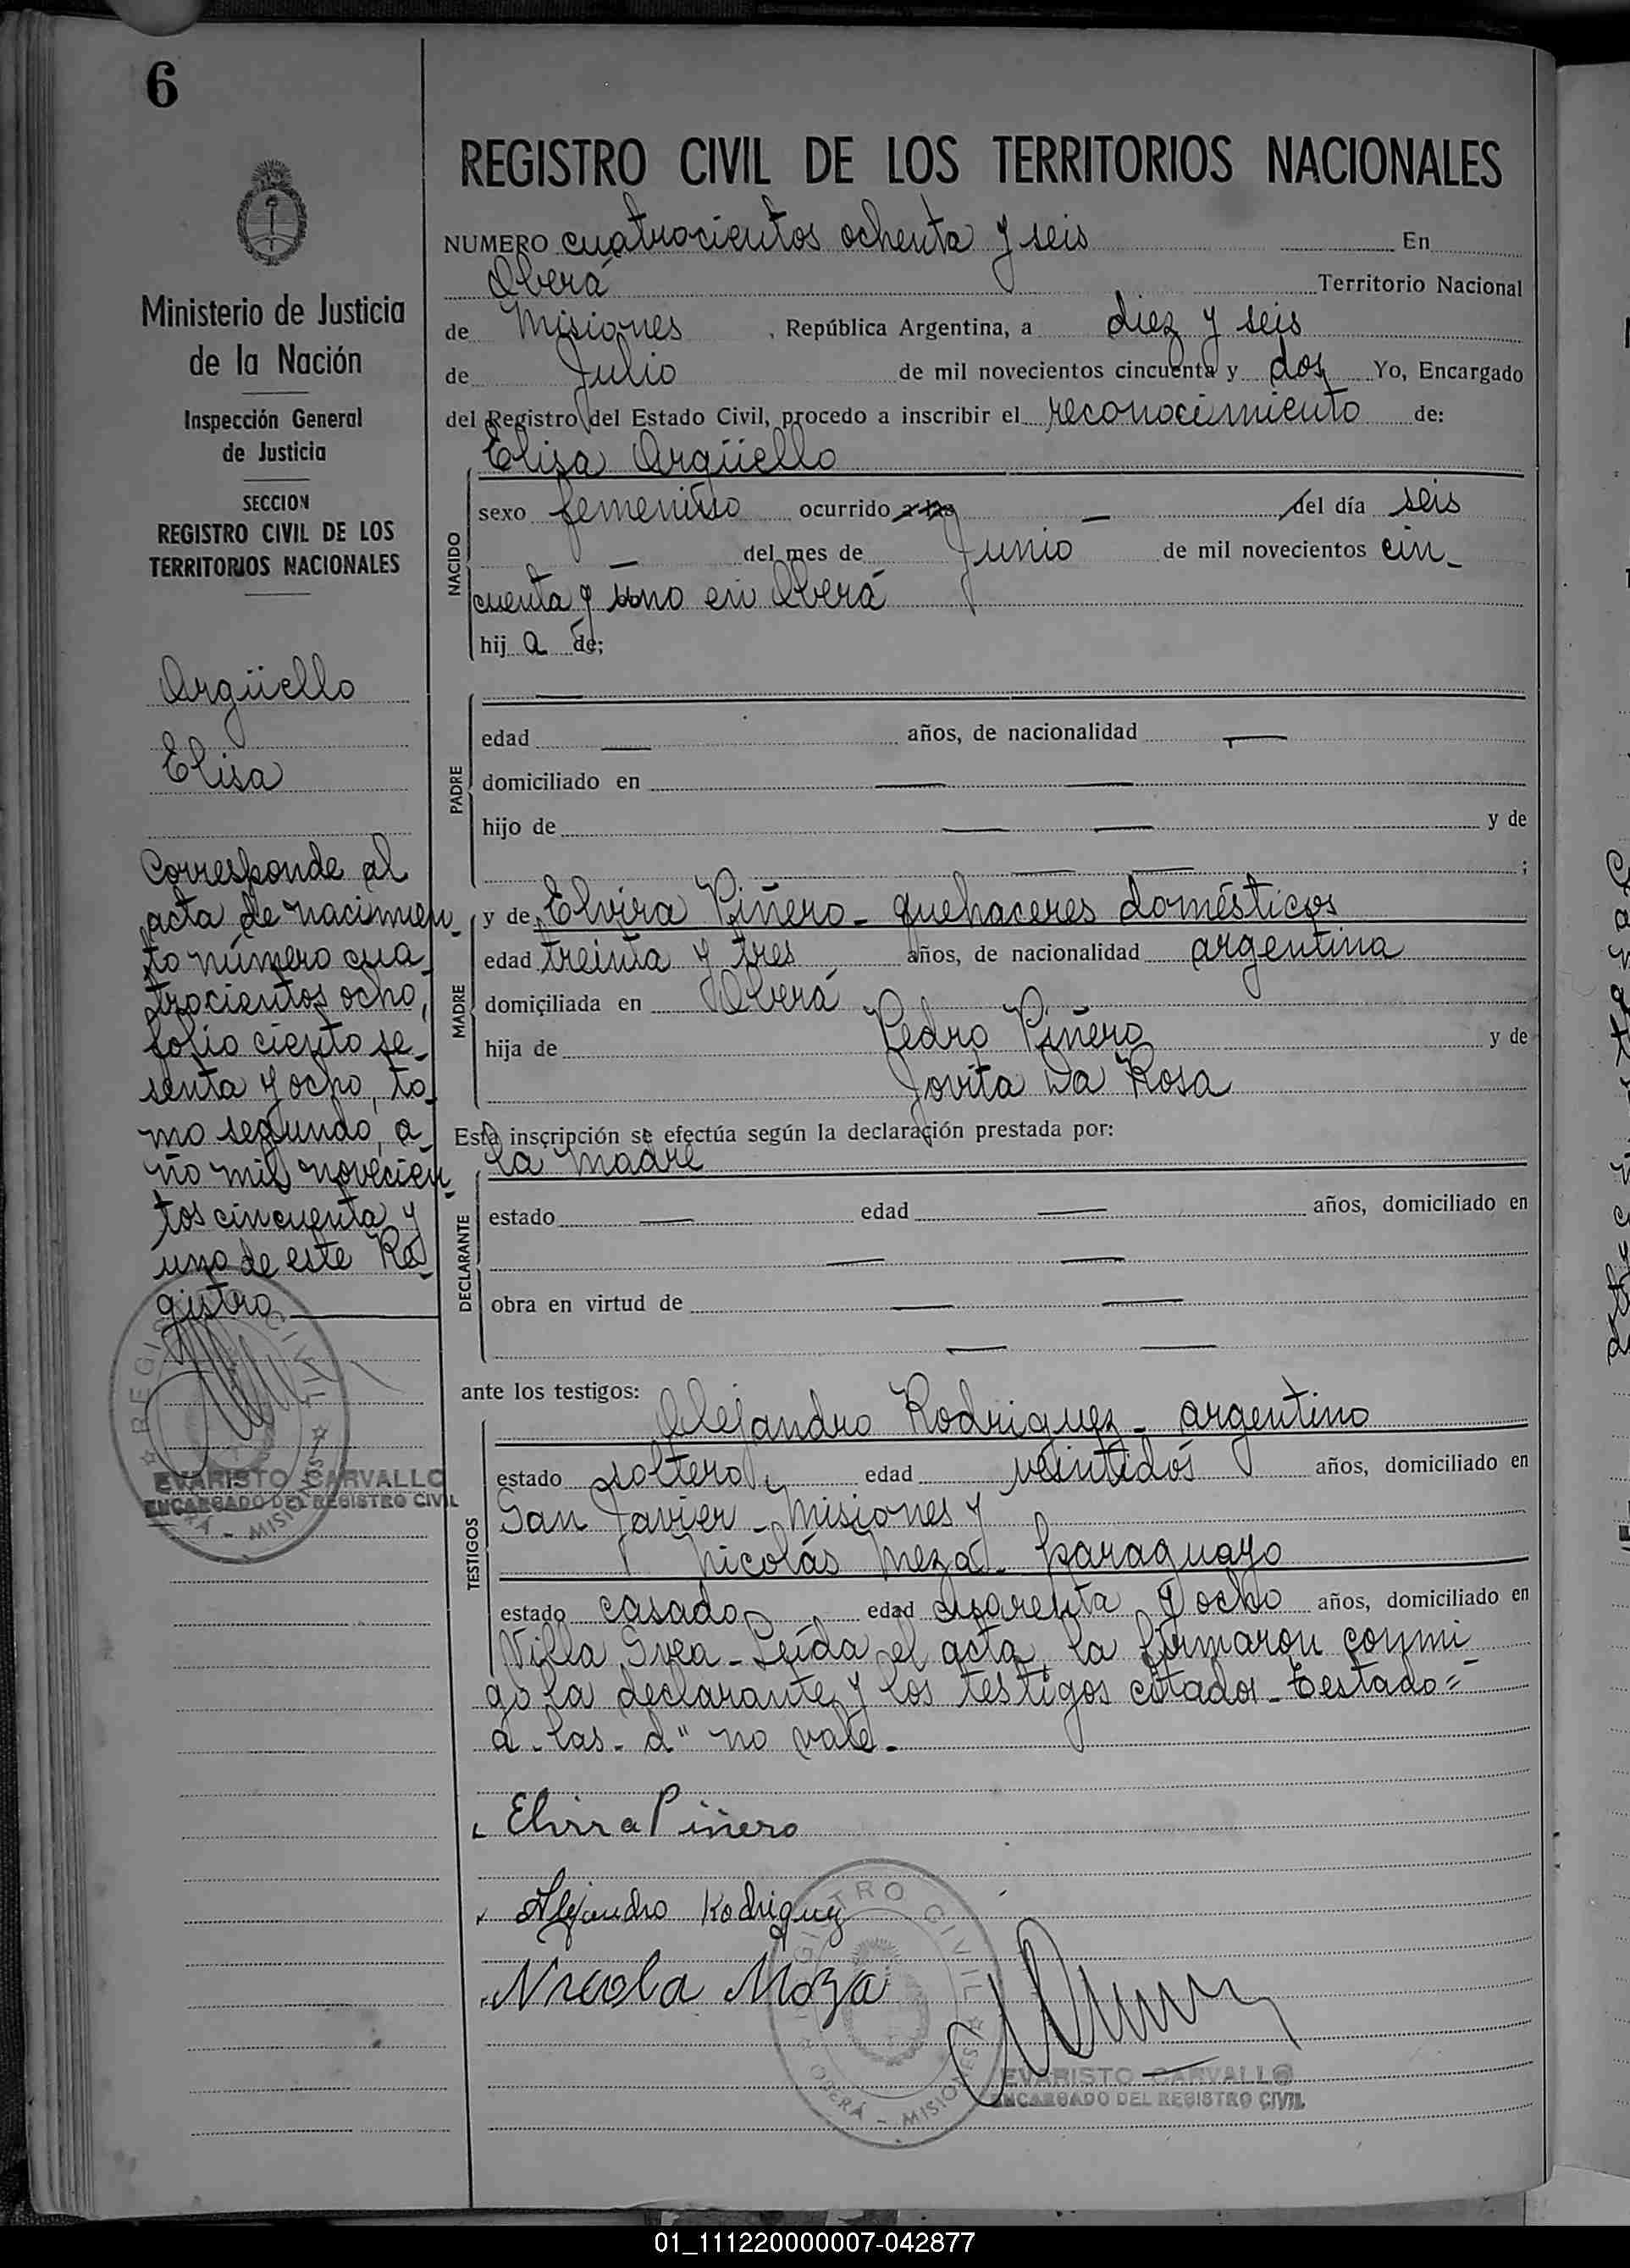 6
REGISTRO CIVIL DE LOS TERRITORIOS NACIONALES
NUMERO cuatrocientos ochenta y seis En
Oberá Territorio Nacional
de Misiones , República Argentina, a diez y seis
de Julio de mil novecientos cincuenta y dos Yo, Encargado
del Registro del Estado Civil, procedo a inscribir el reconocimiento de:
Elisa Argüello
NACIDO
sexo femenino ocurrido a las — del día seis
— del mes de Junio de mil novecientos cin-
cuenta y uno en Oberá
hij a de;
PADRE
—
edad — años, de nacionalidad —
domiciliado en — —
hijo de — — y de
— — ;
MADRE
y de Elvira Piñero - quehaceres domésticos
edad treinta y tres años, de nacionalidad argentina
domiciliada en Oberá
hija de Pedro Piñero y de
Jovita Da Rosa
Esta inscripción se efectúa según la declaración prestada por:
la madre
DECLARANTE
estado — edad — años, domiciliado en
— —
obra en virtud de — —
— —
ante los testigos:
TESTIGOS
Alejandro Rodriguez - argentino
estado soltero, edad veintidós años, domiciliado en
San Javier - Misiones y
Nicolás Meza - paraguayo
estado casado edad cuarenta y ocho años, domiciliado en
Villa Svea - Leída el acta, la firmaron conmi
go la declarante y los testigos citados - Testado="
a - las - d" no vale.
Elvira Piñero
Alejandro Rodriguez
Nicola Meza
REGISTRO CIVIL
OBERÁ - MISIONES
EVARISTO CARVALLO
ENCARGADO DEL REGISTRO CIVIL
Ministerio de Justicia
de la Nación
Inspección General
de Justicia
SECCION
REGISTRO CIVIL DE LOS
TERRITORIOS NACIONALES
Argüello
Elisa
Corresponde al
acta de nacimien-
to número cua-
trocientos ocho,
folio ciento se-
senta y ocho, to-
mo segundo, a-
ño mil novecien-
tos cincuenta y
uno de este Re-
gistro
REGISTRO CIVIL
OBERÁ - MISIONES
EVARISTO CARVALLO
ENCARGADO DEL REGISTRO CIVIL
01_111220000007-042877